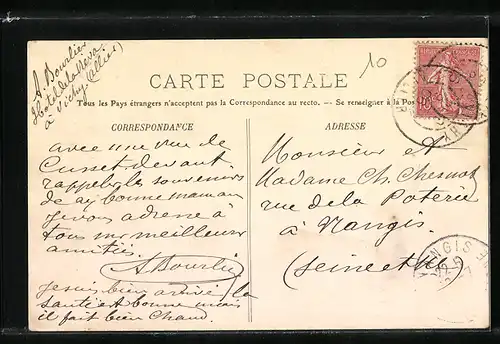 A Bourlier
Hôtel de la Néva
à Vichy (Allier)
10
CARTE POSTALE
Tous les Pays étrangers n'acceptent pas la Correspondance au recto. — Se renseigner à la Poste
CORRESPONDANCE
avec une vue de
Cusset devant
rappeler les souvenirs
de bonne maman
je vous adresse à
tous mes meilleurs
amitiés
A. Bourlier
je suis bien arrivé la
santé est bonne mais
il fait bien chaud.
ADRESSE
Monsieur et
Madame Ch. Chesnot
rue de la Poterie
à Nangis
(Seine et M)
NANGIS